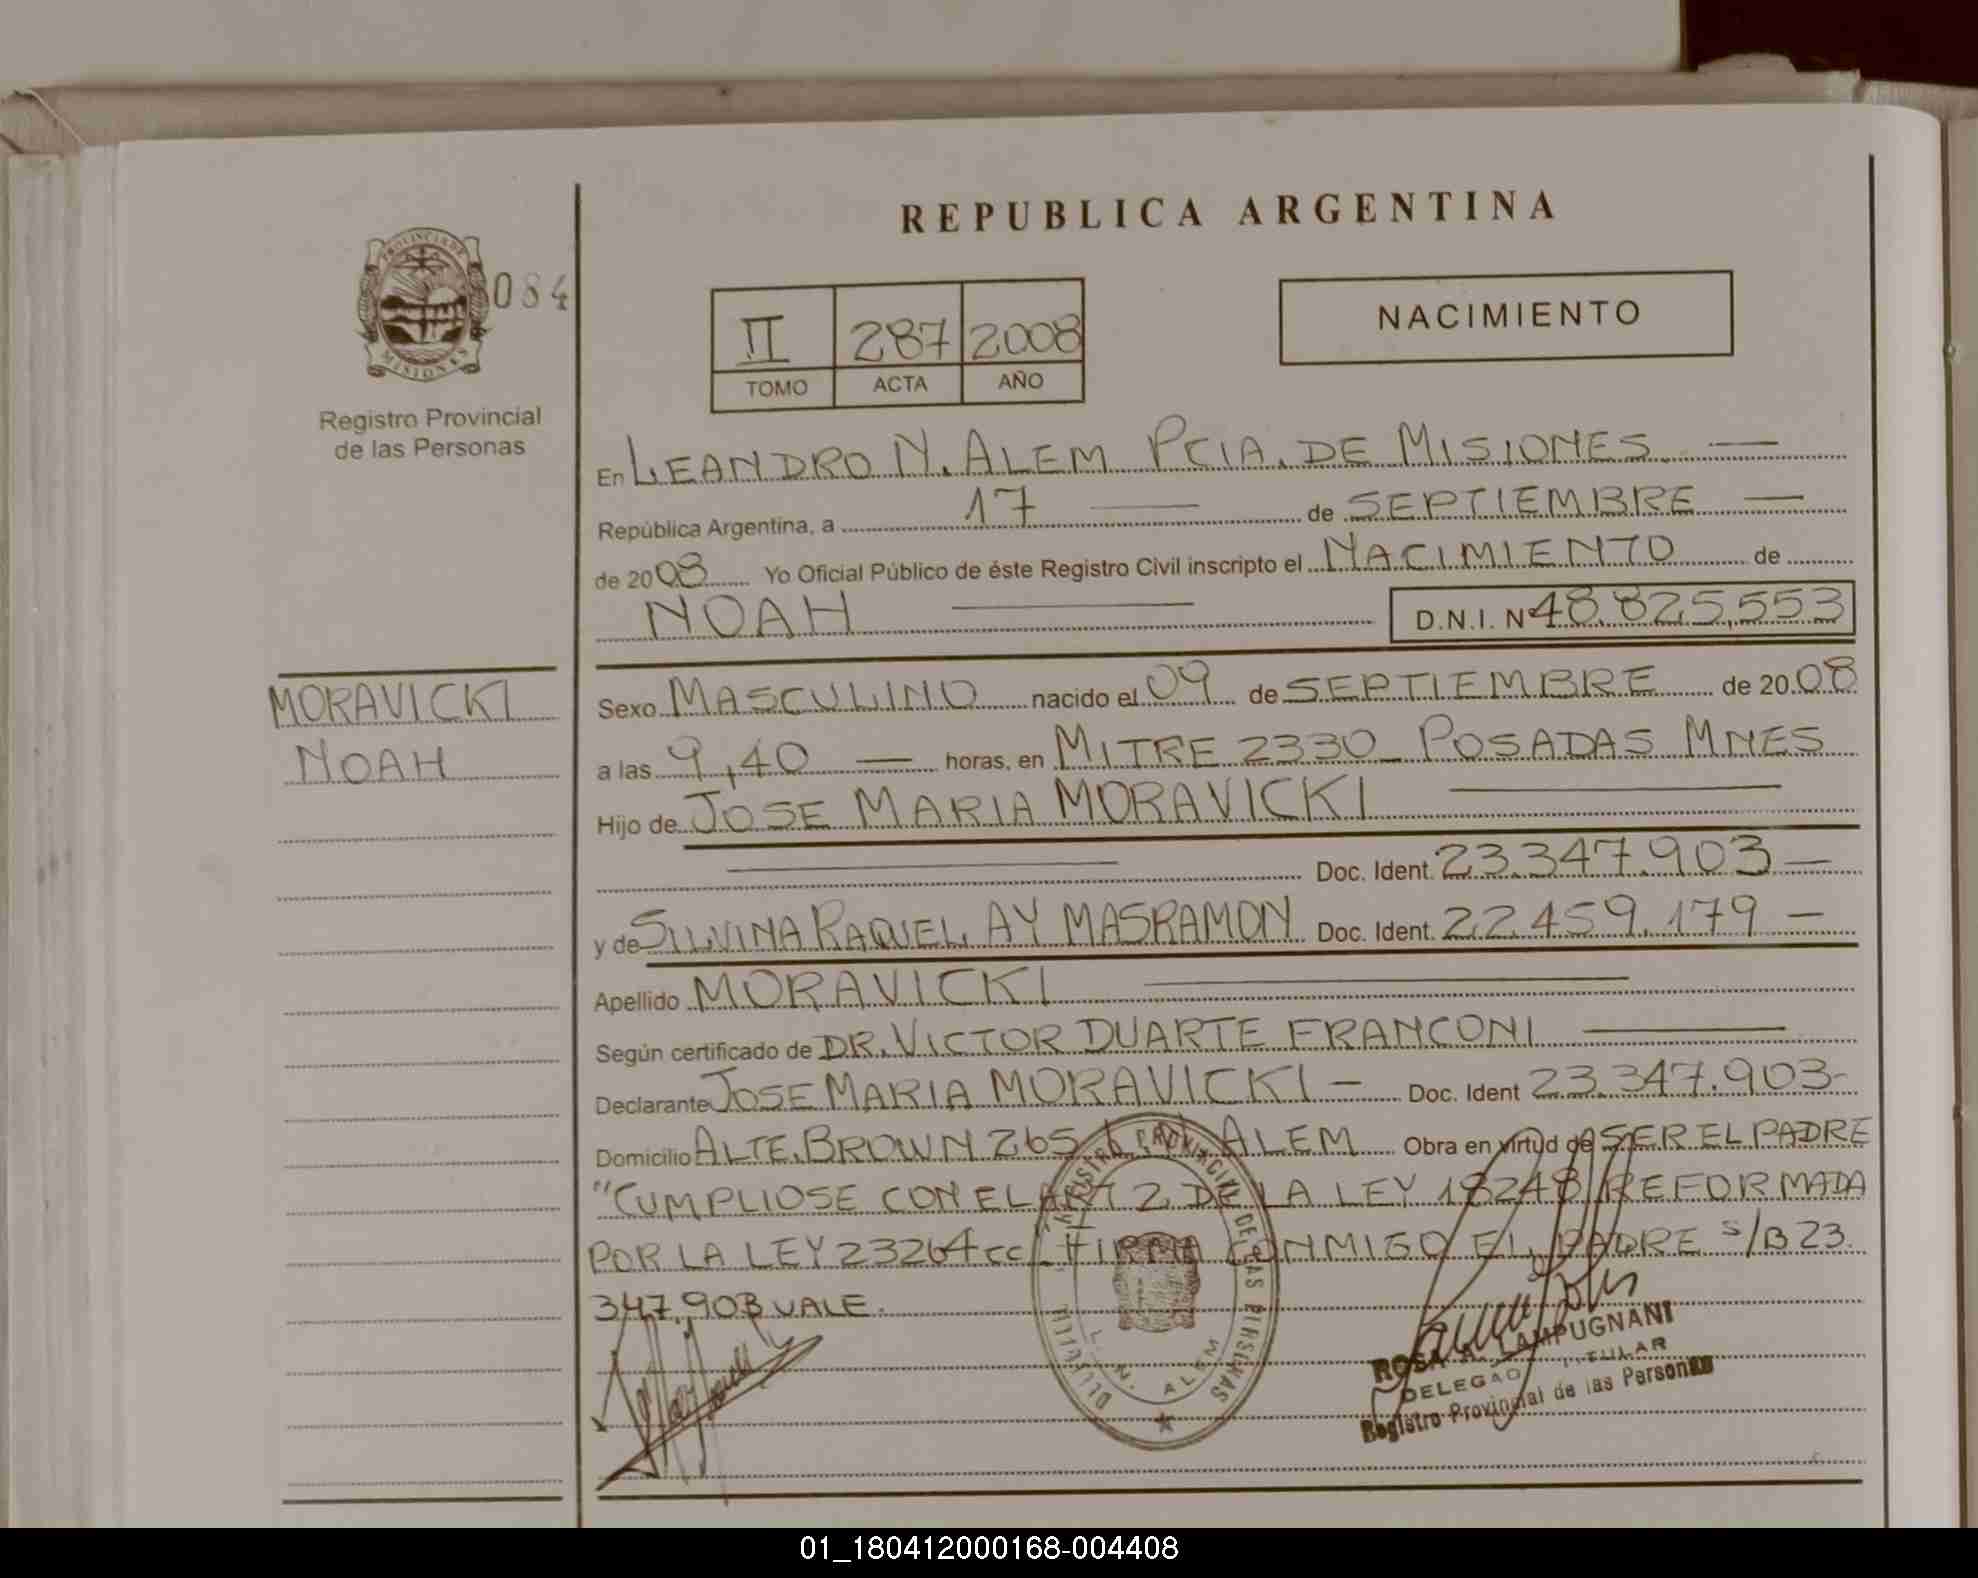 REPUBLICA ARGENTINA
PROVINCIA DE
MISIONES
084
Registro Provincial
de las Personas
II 287 2008
TOMO ACTA AÑO
NACIMIENTO
En LEANDRO N. ALEM PCIA. DE MISIONES.
República Argentina, a 17 de SEPTIEMBRE
de 2008 Yo Oficial Público de éste Registro Civil inscripto el NACIMIENTO de
NOAH D.N.I. Nº 48.825,553
MORAVICKI
NOAH
Sexo MASCULINO nacido el 09 de SEPTIEMBRE de 2008
a las 9,40 horas, en MITRE 2330 - POSADAS MNES
Hijo de JOSE MARIA MORAVICKI
Doc. Ident. 23.347.903
y de SILVINA RAQUEL AY MASRAMON Doc. Ident. 22.459.179
Apellido MORAVICKI
Según certificado de DR. VICTOR DUARTE FRANCONI
Declarante JOSE MARIA MORAVICKI - Doc. Ident 23.347.903-
Domicilio ALTE. BROWN 265 L. N. ALEM Obra en virtud de SER EL PADRE
"CUMPLIOSE CON EL ART 2 DE LA LEY 18248 REFORMADA
POR LA LEY 23264 cc FIRMA CONMIGO EL PADRE S/B 23.
347.903 VALE.
REGISTRO PROVINCIAL DE LAS PERSONAS
L. N. ALEM
ROSA A. LAMPUGNANI
DELEGADO TITULAR
Registro Provincial de las Personas
01_180412000168-004408